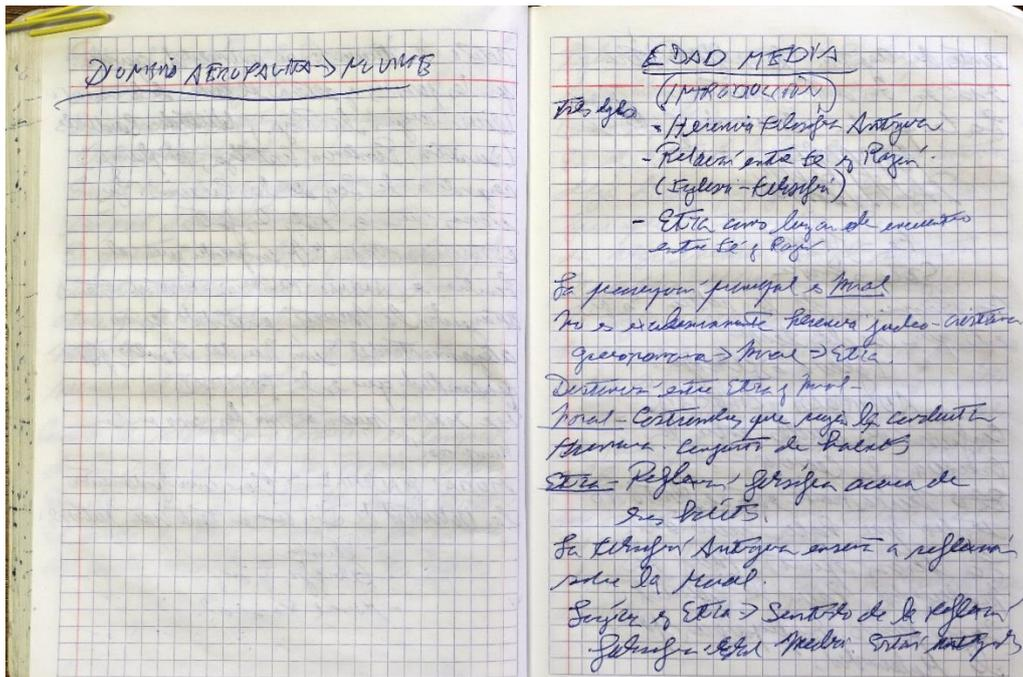 EDAD MEDIA
(INTRODUCCIÓN)
Tres ejes
- Herencia Filosofía Antigua
- Relación entre fe y Razón.
(Iglesia - Filosofía)
- Ética como lugar de encuentro
entre fé y Razón
La principal es Moral
No es exclusivamente herencia judeo-cristiana
grecorromana -> Moral -> Ética.
Distinción entre Ética y Moral -
Moral - Costumbres que rigen la conducta
Humana. conjunto de
Ética - Reflexión filosófica acerca de
esos
La Filosofía Antigua enseñó a reflexionar
sobre la Moral.
Lógica y Ética -> Sentido de la reflexión
filosófica Edad Media. Están